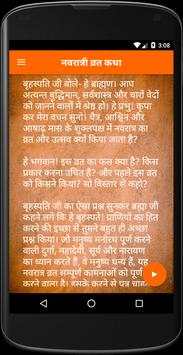 3:08
नवरात्री व्रत कथा
बृहस्पति जी बोले- हे ब्राह्मण। आप
अत्यन्त बुद्धिमान, सर्वशास्त्र और चारों वेदों
को जानने वालों में श्रेष्ठ हो। हे प्रभु! कृपा
कर मेरा वचन सुनो। चैत्र, आश्विन और
आषाढ़ मास के शुक्लपक्ष में नवरात्र का
व्रत और उत्सव क्यों किया जाता है?
हे भगवान! इस व्रत का फल क्या है? किस
प्रकार करना उचित है? और पहले इस व्रत
को किसने किया? सो विस्तार से कहो।
बृहस्पति जी का ऐसा प्रश्न सुनकर ब्रह्मा जी
कहने लगे कि हे बृहस्पते! प्राणियों का हित
करने की इच्छा से तुमने बहुत ही अच्छा
प्रश्न किया। जो मनुष्य मनोरथ पूर्ण करने
वाली दुर्गा, महादेवी, सूर्य और नारायण
का ध्यान करते हैं, वे मनुष्य धन्य हैं, यह
नवरात्र व्रत सम्पूर्ण कामनाओं को पूर्ण
करने वाला है। इसके करने से पुत्र चाहने